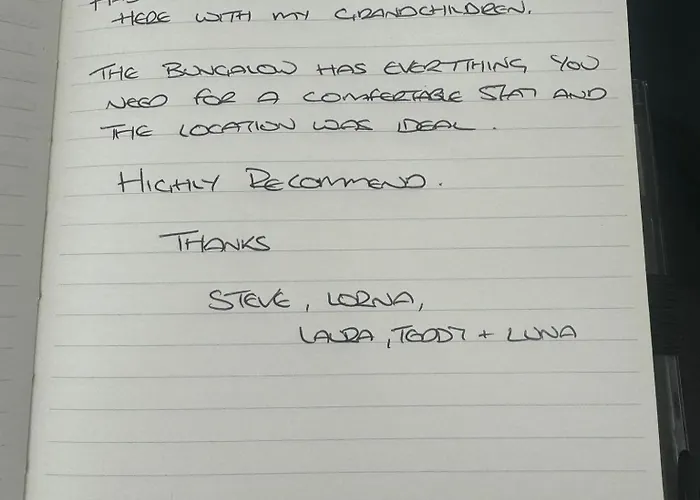 HERE WITH MY GRANDCHILDREN.
THE BUNGALOW HAS EVERYTHING YOU
NEED FOR A COMFERTABLE STAY AND
THE LOCATION WAS IDEAL.
HIGHLY RECOMMEND.
THANKS
STEVE, LORNA,
LAURA, TEDDY + LUNA